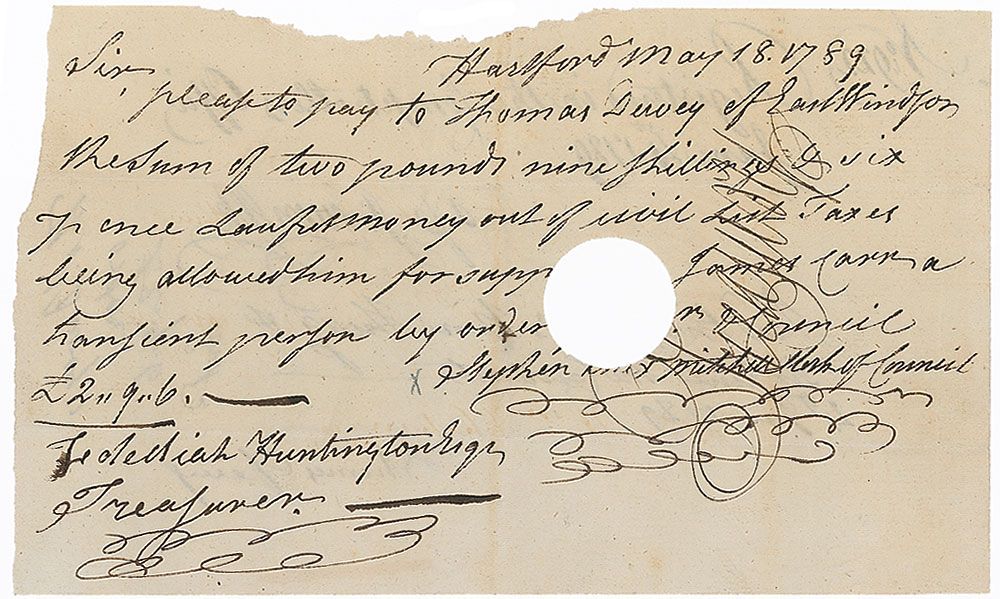 Hartford May 18. 1789
Sir,
please to pay to Thomas Dewey of East Windsor
the Sum of two pounds nine shillings & six
pence Lawful money out of civil List Taxes
being allowed him for supp James Carr a
transient person by order of Council
Stephen Mix Mitchell Clerk of Council
£2 " 9 " 6.
x
Jedediah Huntington Esqr
Treasurer.